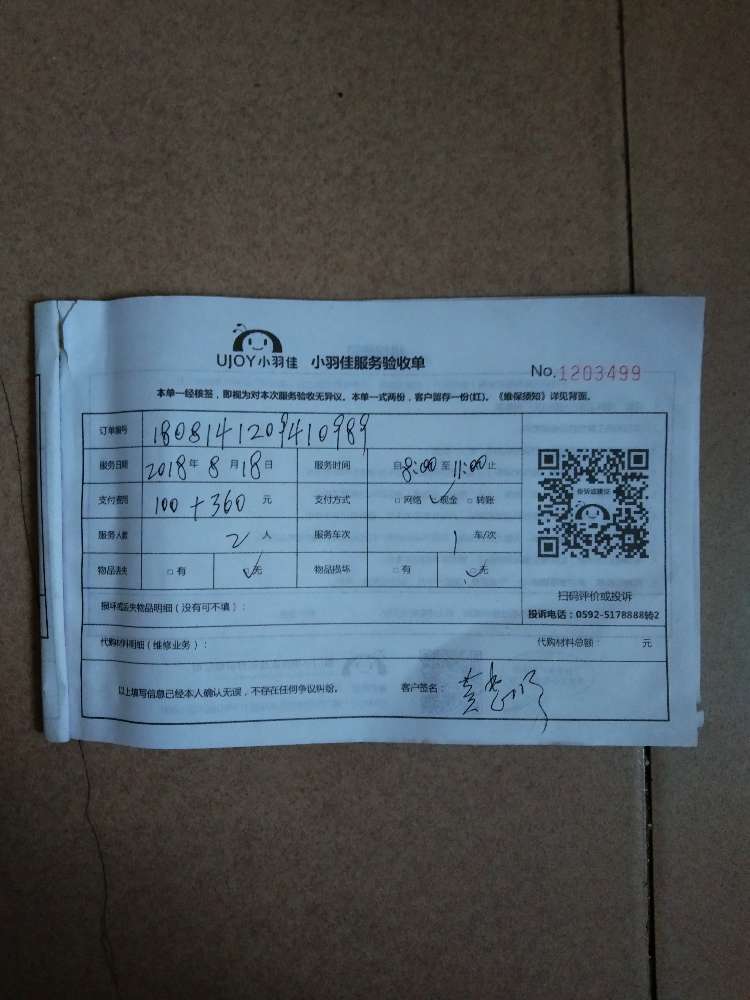 UJOY小羽佳 小羽佳服务验收单
No.1203499
本单一经核签，即视为对本次服务验收无异议。本单一式两份，客户留存一份(红)。《维保须知》详见背面。
订单编号 180814120941​0989
服务日期 2018年8月18日 服务时间 自8:00至11:00止
支付费用 100+360元 支付方式 □网络 ✓现金 □转账
服务人数 2人 服务车次 1车/次
物品丢失 □有 ✓无 物品损坏 □有 ✓无
扫码评价或投诉
损坏或丢失物品明细（没有可不填）：
投诉电话：0592-5178888转2
代购材料明细（维修业务）：
代购材料总额： 元
以上填写信息已经本人确认无误，不存在任何争议纠纷。 客户签名：黄